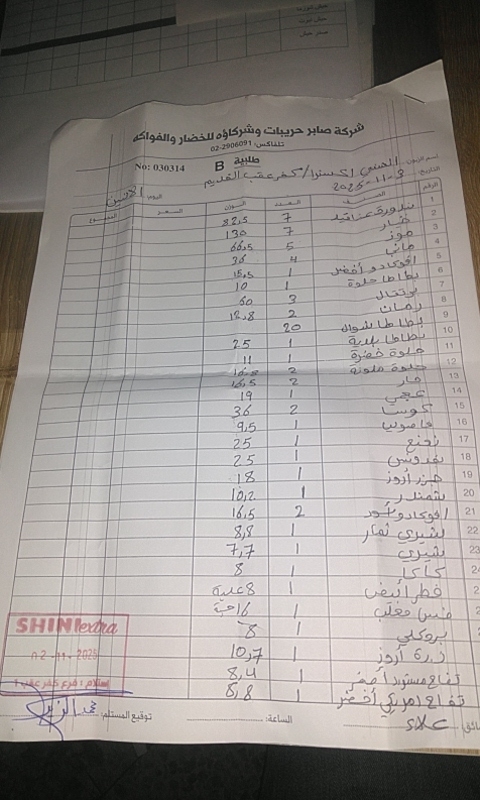 شركة صابر حريبات وشركاؤه للخضار والفواكه
تلفاكس: 02-2906091
طلبية B
No: 030314
اسم الزبون: الحسني اكسترا/كفر عقب القديم
التاريخ: 3-11-2025 اليوم الاثنين
الرقم الصنف العدد الوزن السعر المجموع
1 بندورة عناقيد 7 82,5
2 خيار 7 130
3 موز 5 66,5
4 مانجا 4 36
5 افوكادو أخضر 1 15,5
6 بطاطا حلوة 1 10
7 برتقال 3 60
8 رمان 2 12,8
9 بطاطا شوال 20
10 بطاطا بلدية 1 25
11 حلوة خضرة 1 11
12 حلوة ملونة 2
13 حار 2 16,5
14 عجمي 1 19
15 كوسا 2 36
16 فاصوليا 1 9,5
17 نعنع 1 25
18 بقدونس 1 25
19 جزر أروز 1 18
20 شمندر 1 10,2
21 افوكادو أسود 2 16,5
22 شيري تمار 1 8,8
23 شيري 1 7,7
كاكا 1 8
فطر ابيض 1 8 علبة
خس مغلف 1 16 حبة
بروكلي 1 8
ذرة أروز 1 10,7
تفاح مستورد أصفر 1 8,4
تفاح امريكي أخضر 1 8,8
SHINI extra
02-11-2025
استلام: فرع كفر عقب 1
الساعة:
توقيع المستلم:
علاء